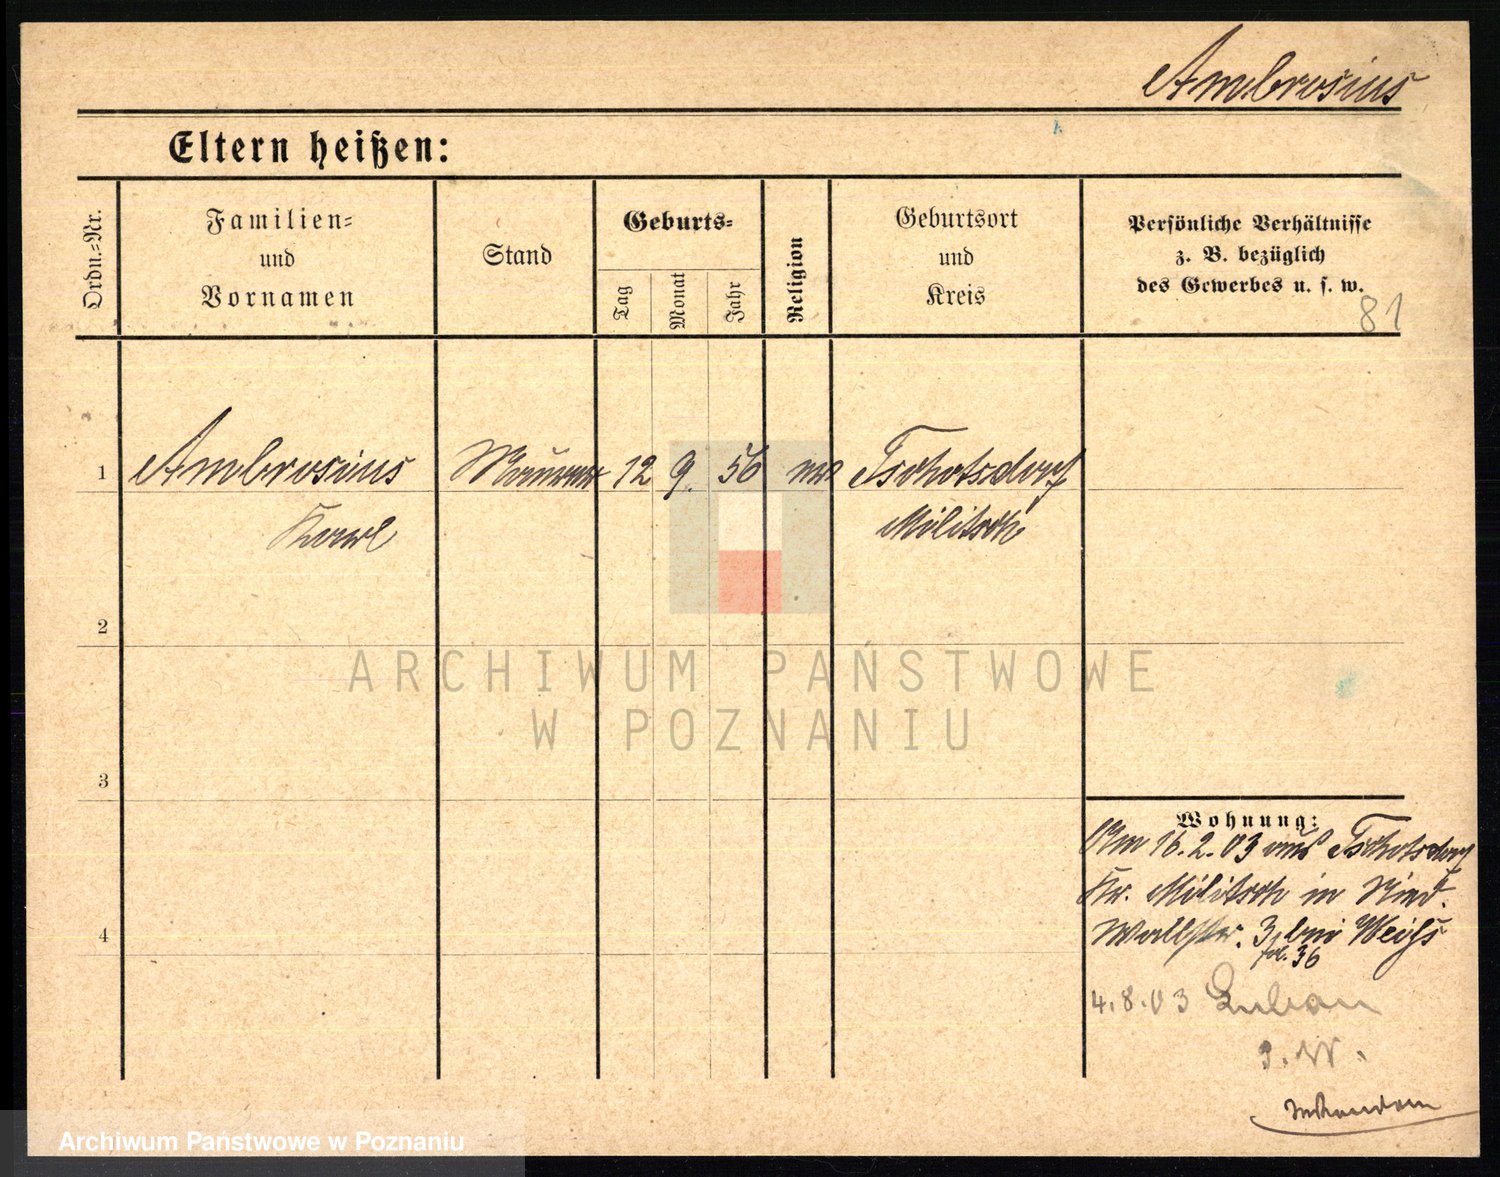 Ambrosius
Eltern heißen:
Ordn.=Nr.
Familien=
und
Vornamen
Stand
Geburts=
Tag
Monat
Jahr
Religion
Geburtsort
und
Kreis
Persönliche Verhältnisse
z. B. bezüglich
des Gewerbes u. s. w.
81
1 Ambrosius Maurer 12 9. 56 ev Tschotsdorf
Karl Militsch
2
ARCHIWUM PAŃSTWOWE
W POZNANIU
3
Wohnung:
Am 16.2.03 aus Tschotsdorf
Kr. Militsch in Nied.
Wallstr. 3 bei Weiß
36
4
4.8.03 Luban
P. W.
Archiwum Państwowe w Poznaniu